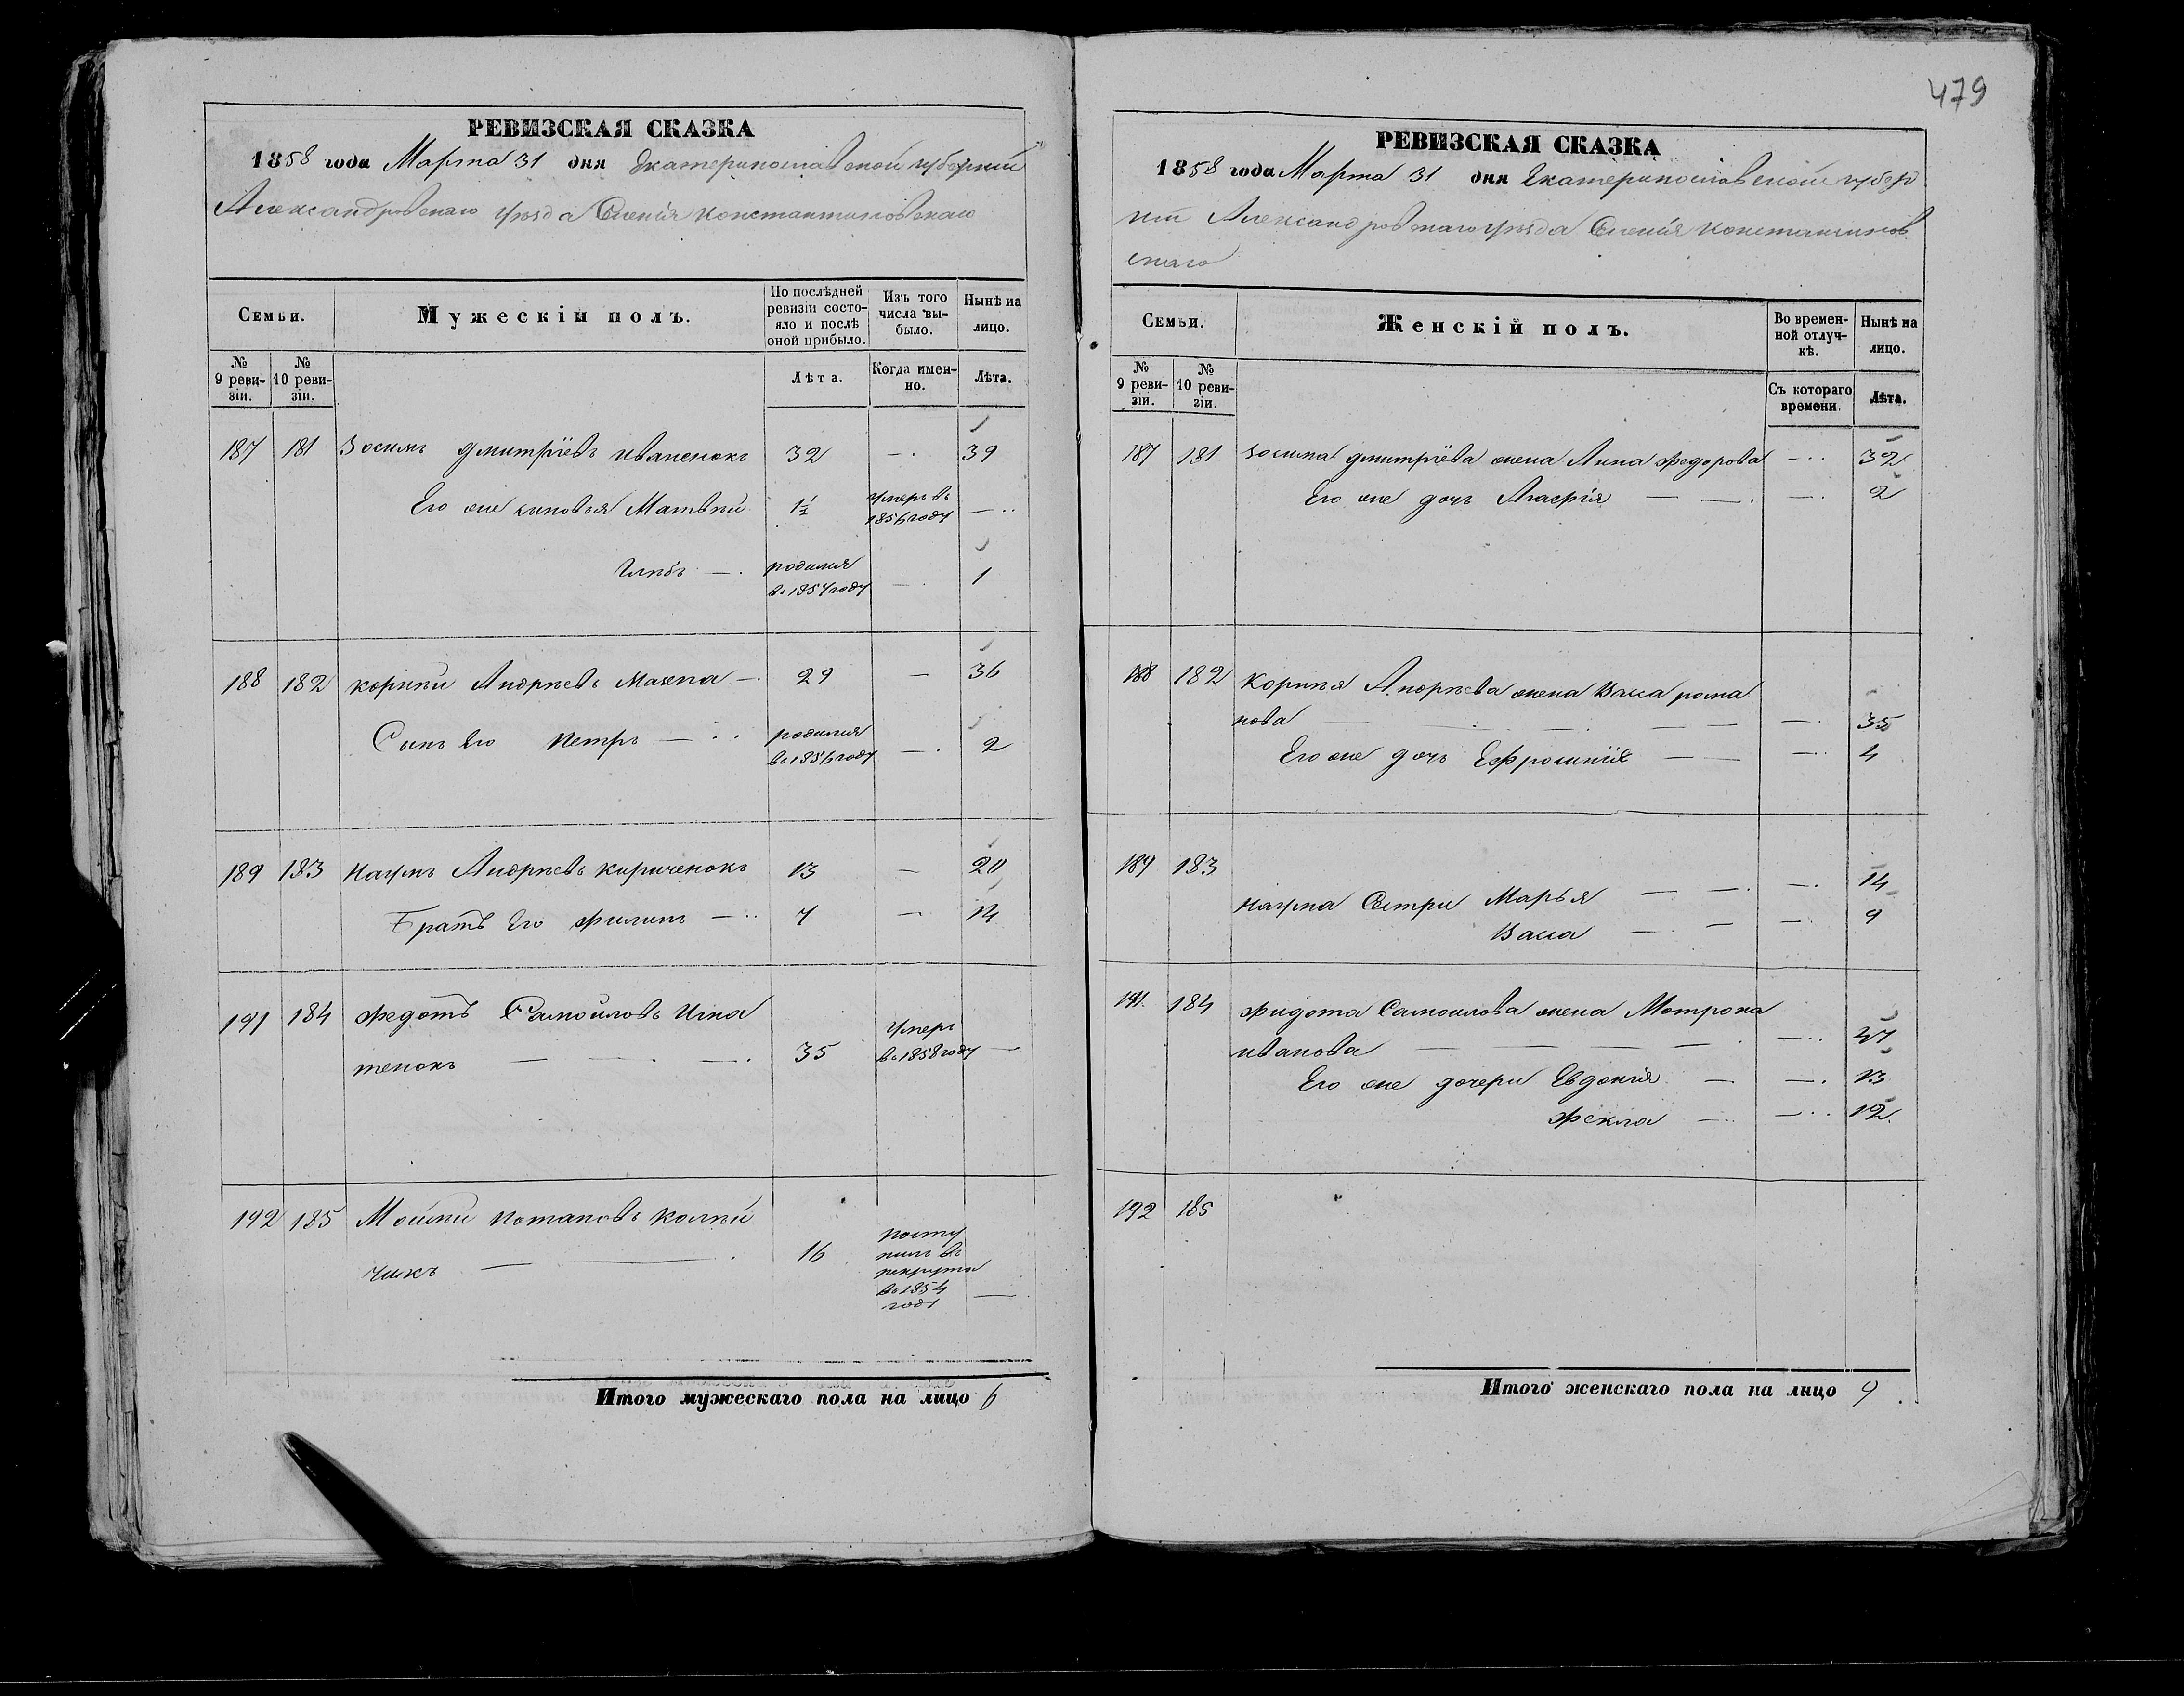 479
РЕВИЗСКАЯ СКАЗКА
1858 года Марта 31 дня Екатеринославской губернии
Александровскаго уѣзда Селенія Константиновскаго
Семьи. Мужескій полъ. По послѣдней ревизіи состояло и послѣ оной прибыло. Изъ того числа выбыло. Нынѣ на лицо.
№ 9 ревизіи. № 10 ревизіи. Лѣта. Когда именно. Лѣта.
187 181 Зосимъ Дмитріевъ Иваненокъ 32 — 39
Его же сыновья Матвѣй 1½ умеръ въ 1856 году —
Глѣбъ — родился въ 1857 году — 1
188 182 Корнѣй Андреевъ Махна — 29 — 36
Сынъ Его Петръ — родился въ 1856 году — 2
189 183 Наумъ Андреевъ Кириченокъ 13 — 20
Братъ Его Филипъ — 7 — 14
191 184 Федотъ Самойловъ Игна
тенокъ — 35 умеръ въ 1858 году —
192 185 Мойсѣй Потаповъ
чикъ — 16 поступилъ въ рекруты въ 1854 году —
Итого мужескаго пола на лицо 6
РЕВИЗСКАЯ СКАЗКА
1858 года Марта 31 дня Екатеринославской губер
ніи Александровскаго уѣзда Селенія Константинов
скаго
Семьи. Женскій полъ. Во временной отлучкѣ. Нынѣ на лицо.
№ 9 ревизіи. № 10 ревизіи. Съ котораго времени. Лѣта.
187 181 Зосима Дмитріева жена Анна Федорова — 32
Его же дочь — 2
188 182 Корнѣя Андреева жена Васса Рома
нова — 35
Его же дочь Ефросинія — 4
189 183
Наума Сестры Марья — 14
Васса — 9
191. 184 Фидота Самоилова жена Мотрона
Иванова — 47
Его же дочери Евдокія — 13
Фекла — 12.
192 185
Итого женскаго пола на лицо 9